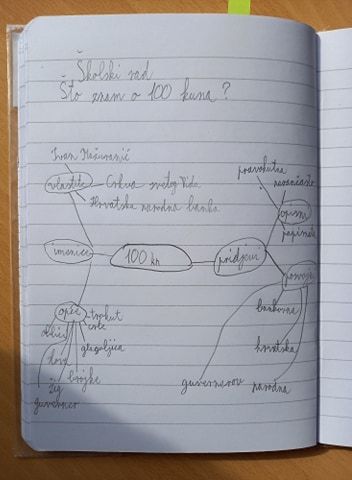 Školski rad
Što znam o 100 kuna?
Ivan Mažuranić
vlastite
Crkva svetog Vida
Hrvatska narodna banka
pravokutna
narančasta
opisni
papirnata
imenice
100 kn
pridjevi
opće
trokut
glagoljica
brojke
žig
guverner
bankovna
hrvatska
narodna
guvernerov